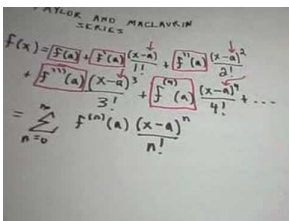 TAYLOR AND MACLAURIN
SERIES
f(x) = f(a) + f'(a) (x-a)/1! + f''(a) (x-a)²/2!
+ f'''(a) (x-a)³/3! + f⁽⁴⁾(a) (x-a)⁴/4! + ...
= ∞∑n=0 f⁽ⁿ⁾(a) (x-a)ⁿ/n!